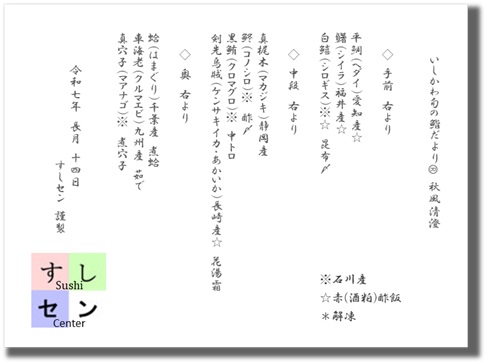 いしかわ旬の鮨だより 秋風清澄
◇ 手前 右より
平鯛(ヘダイ)愛知産☆
鱰(シイラ)福井産☆
白鱚(シロギス)※☆ 昆布〆
◇ 中段 右より
真梶木(マカジキ)静岡産
鮗(コノシロ)※ 酢〆
黒鮪(クロマグロ)※ 中トロ
剣先烏賊(ケンサキイカ・あかいか)長崎産☆ 花湯霜
◇ 奥 右より
蛤(はまぐり)千葉産 煮蛤
車海老(クルマエビ)九州産 茹で
真穴子(マアナゴ)※ 煮穴子
令和七年 長月 十四日
すしセン 謹製
※石川産
☆赤(酒粕)酢飯
＊解凍
すし
Sushi
セン
Center